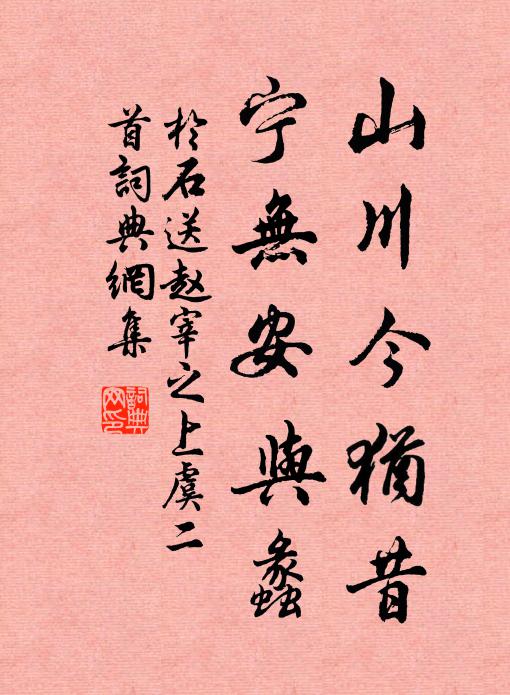 山川今猶昔
宁無安與蠡
於石送赵宰之上虞二
首詞典網集
詞典
网印